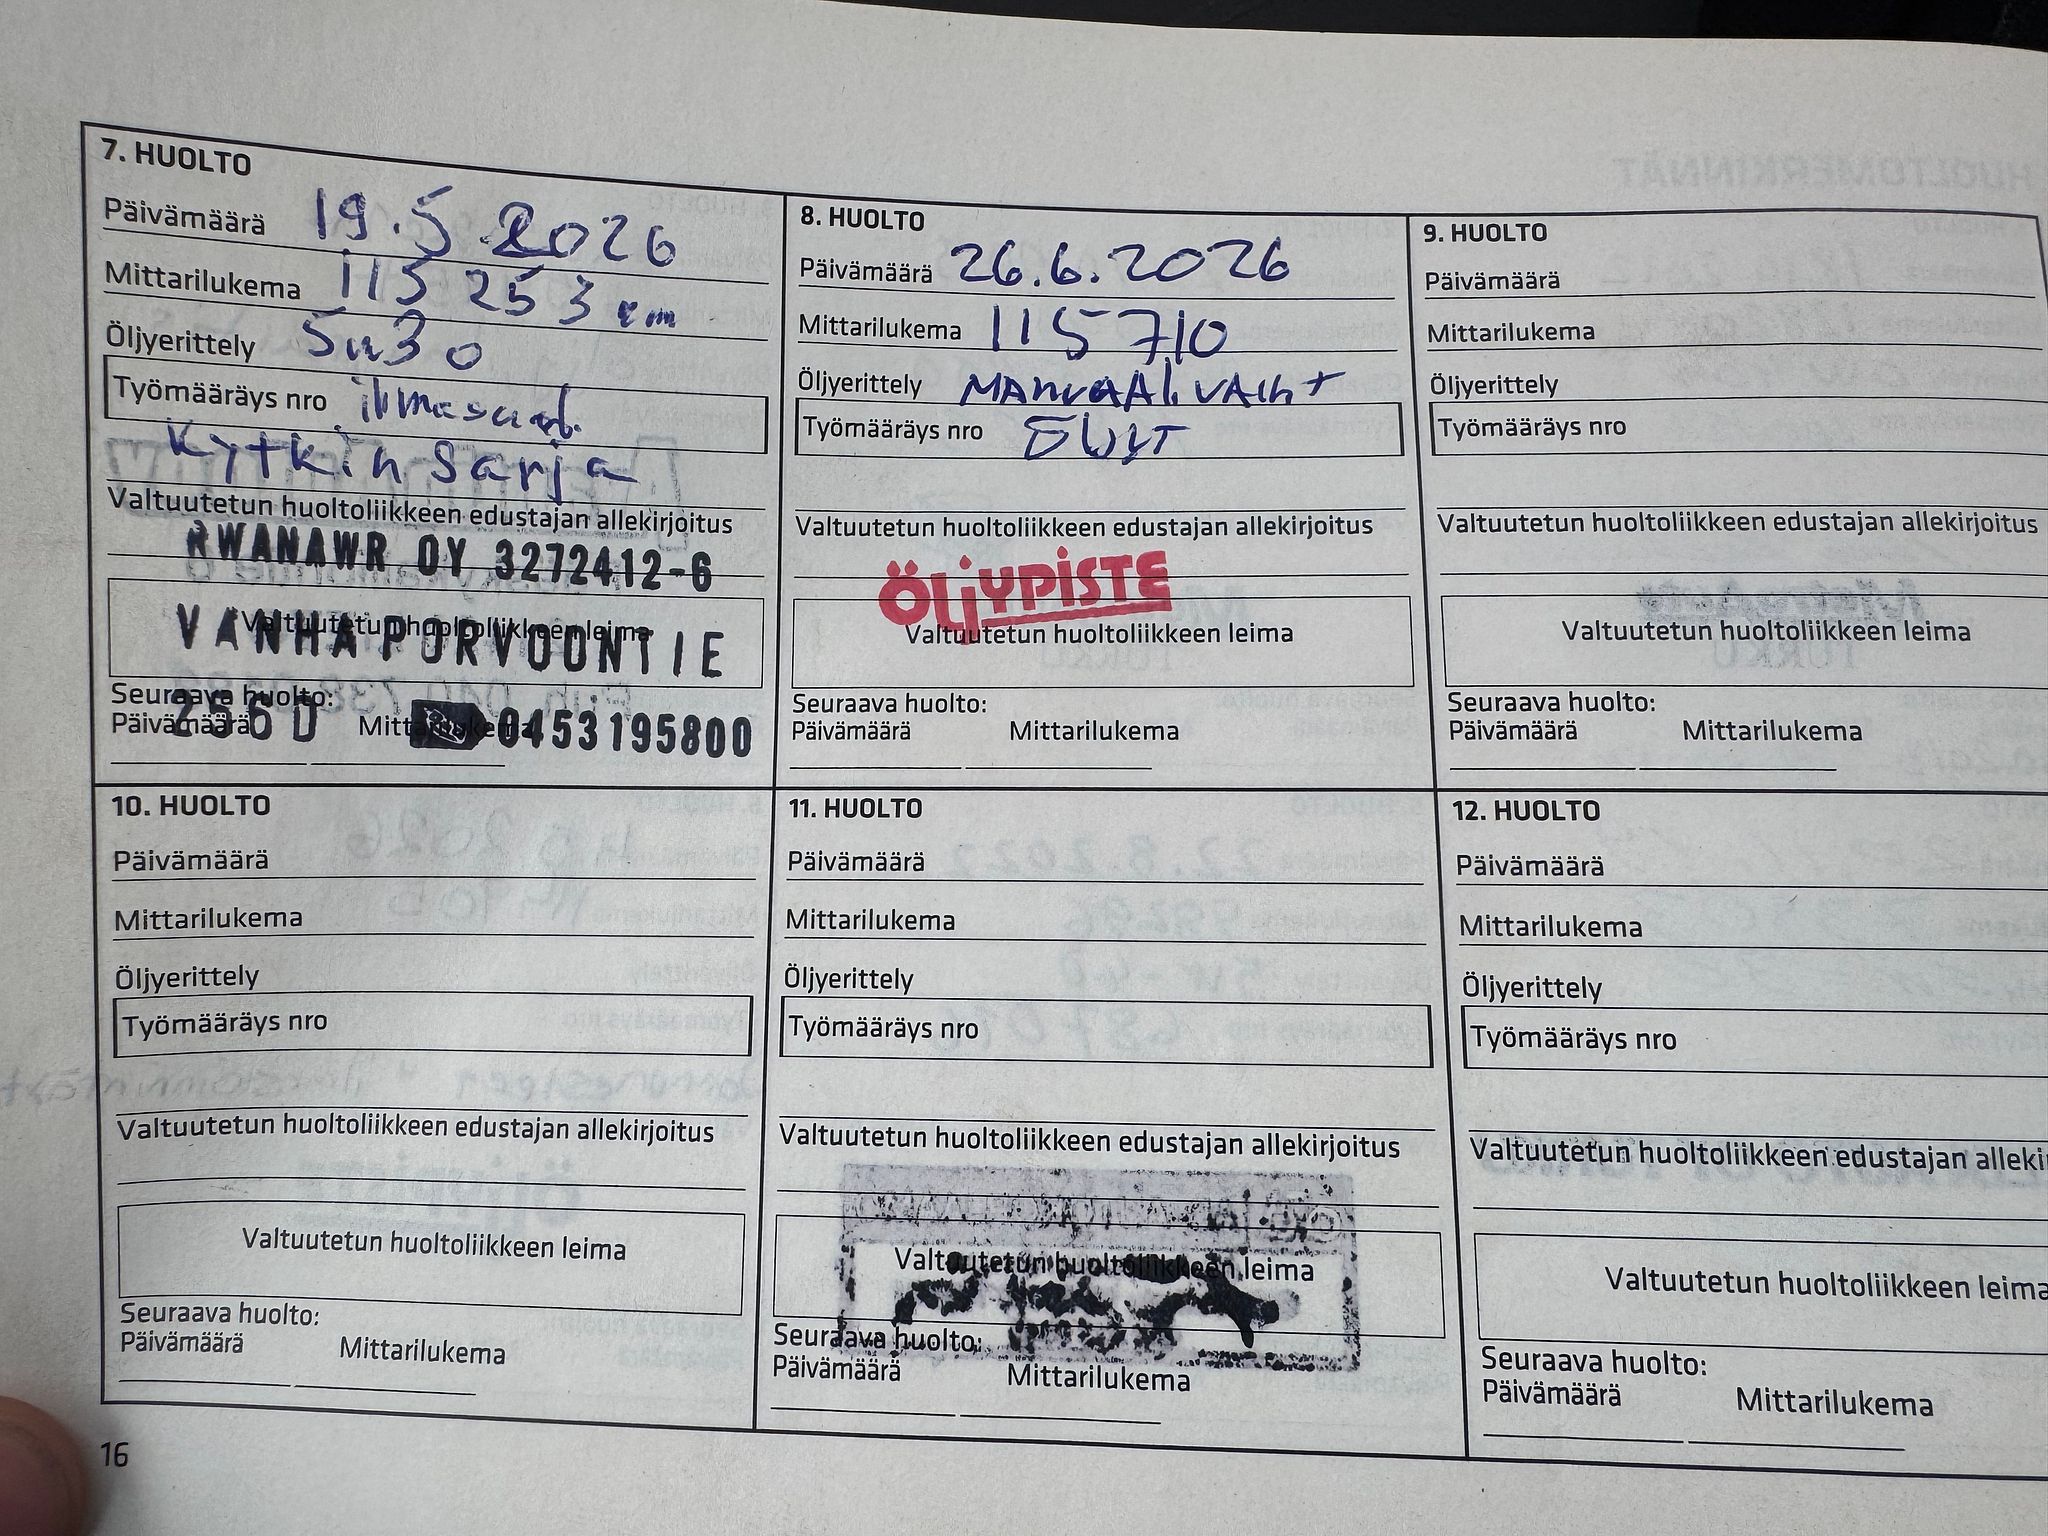 7. HUOLTO
Päivämäärä 19.5.2026
Mittarilukema 115 253 km
Öljyerittely 5w30
Työmääräys nro ilmasuod.
Kytkin sarja
Valtuutetun huoltoliikkeen edustajan allekirjoitus
RWANAWR OY 3272412-6
Valtuutetun huoltoliikkeen leima
VANHA PORVOONTIE
Seuraava huolto:
Päivämäärä Mittarilukema
256D 0453195800
8. HUOLTO
Päivämäärä 26.6.2026
Mittarilukema 115710
Öljyerittely MANUAALIVAIHT
Työmääräys nro ÖLJYT
Valtuutetun huoltoliikkeen edustajan allekirjoitus
ÖLJYPISTE
Valtuutetun huoltoliikkeen leima
Seuraava huolto:
Päivämäärä Mittarilukema
9. HUOLTO
Päivämäärä
Mittarilukema
Öljyerittely
Työmääräys nro
Valtuutetun huoltoliikkeen edustajan allekirjoitus
Valtuutetun huoltoliikkeen leima
Seuraava huolto:
Päivämäärä Mittarilukema
10. HUOLTO
Päivämäärä
Mittarilukema
Öljyerittely
Työmääräys nro
Valtuutetun huoltoliikkeen edustajan allekirjoitus
Valtuutetun huoltoliikkeen leima
Seuraava huolto:
Päivämäärä Mittarilukema
11. HUOLTO
Päivämäärä
Mittarilukema
Öljyerittely
Työmääräys nro
Valtuutetun huoltoliikkeen edustajan allekirjoitus
Valtuutetun huoltoliikkeen leima
Seuraava huolto:
Päivämäärä Mittarilukema
12. HUOLTO
Päivämäärä
Mittarilukema
Öljyerittely
Työmääräys nro
Valtuutetun huoltoliikkeen edustajan alleki
Valtuutetun huoltoliikkeen leima
Seuraava huolto:
Päivämäärä Mittarilukema
16